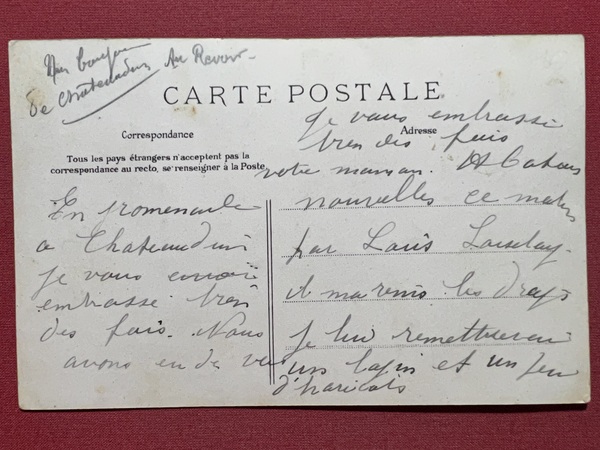 Un bonjour
de Chateaudun Au Revoir
CARTE POSTALE
Correspondance
Adresse
Tous les pays étrangers n'acceptent pas la
correspondance au recto, se renseigner à la Poste
En promenade
a Chateaudun
je vous envoie
embrasse bien
des fois. Nous
avons eu de vos
nouvelles ce matin
par Louis Loiselay.
il m'a remis les draps
je lui remetterai
un lapin et un peu
d'haricots
je vous embrasse
bien des fois
votre maman.